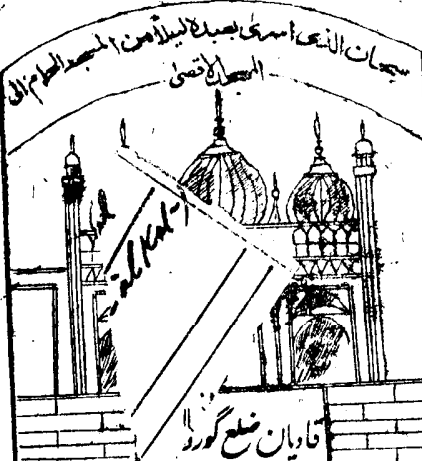 سبحان الذی اسری بعبدہ لیلاً من المسجد الحرام الی
المسجد الاقصیٰ
قادیان ضلع گوردا